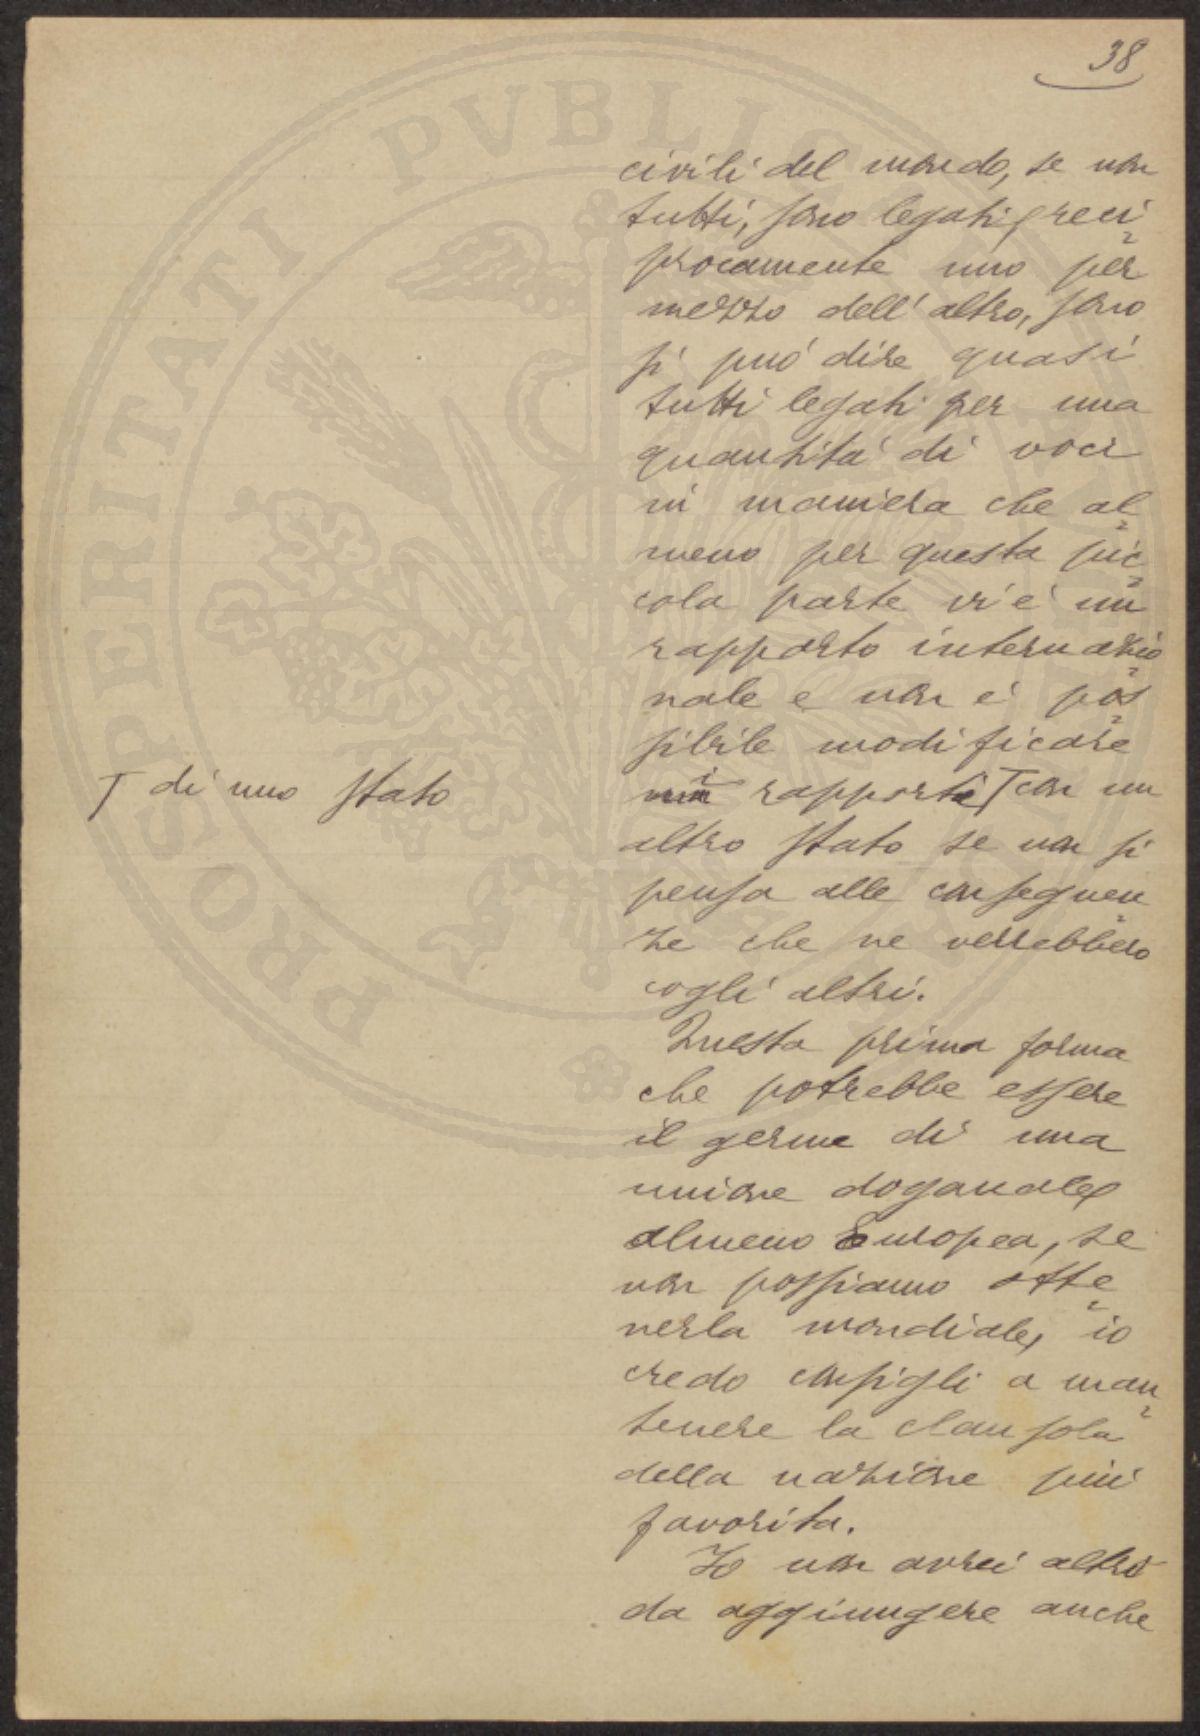 38
civili del mondo, se non
tutti, sono legati reci
procamente uno per
mezzo dell'altro, sono
si può dire quasi
tutti legati per una
quantità di voci
in maniera che al
meno per questa pic
cola parte vi è un
rapporto internazio
nale e non è pos
sibile modificare
T di uno stato
i rapporti T con un
altro stato se non si
pensa alle conseguen
ze che ne verrebbero
cogli altri.
Questa prima forma
che potrebbe essere
il germe di una
unione doganale,
almeno Europea, se
non possiamo otte
nerla mondiale, io
credo consigli a man
tenere la clausola
della nazione più
favorita.
Io non avrei altro
da aggiungere anche
PROSPERITATI PVBLIC